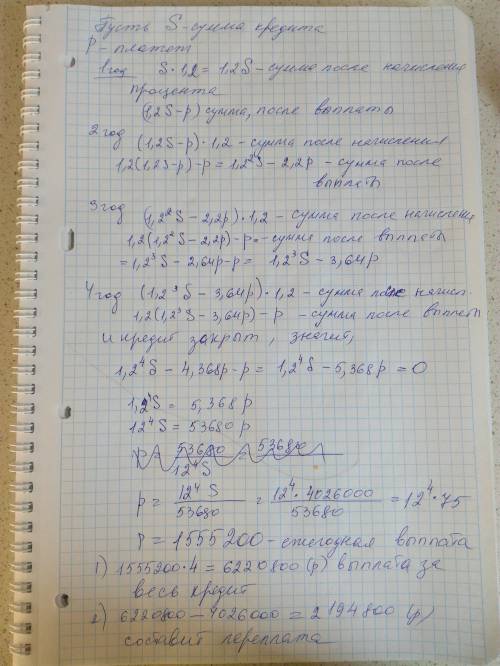 Пусть S - сумма кредита
p - платёж
1 год S·1,2 = 1,2S - сумма после начисления
процента
(1,2S-p) сумма, после выплаты
2 год (1,2S-p)·1,2 - сумма после начисления
1,2(1,2S-p)-p = 1,2²S - 2,2p - сумма после
выплаты
3 год (1,2²S - 2,2p)·1,2 - сумма после начисления
1,2(1,2²S - 2,2p)-p - сумма после выплаты
= 1,2³S - 2,64p - p = 1,2³S - 3,64p
4 год (1,2³S - 3,64p)·1,2 - сумма после начисл.
1,2(1,2³S - 3,64p) - p - сумма после выплаты
и кредит закрыт, значит,
1,2⁴S - 4,368p - p = 1,2⁴S - 5,368p = 0
1,2⁴S = 5,368p
12⁴S = 53680p
p = 53680/12⁴S = 53680
p = 12⁴S/53680 = 12⁴·4026000/53680 = 12⁴·75
p = 1555200 - ежегодная выплата
1) 1555200·4 = 6220800 (р) выплата за
весь кредит
2) 6220800 - 4026000 = 2194800 (р)
составит переплата